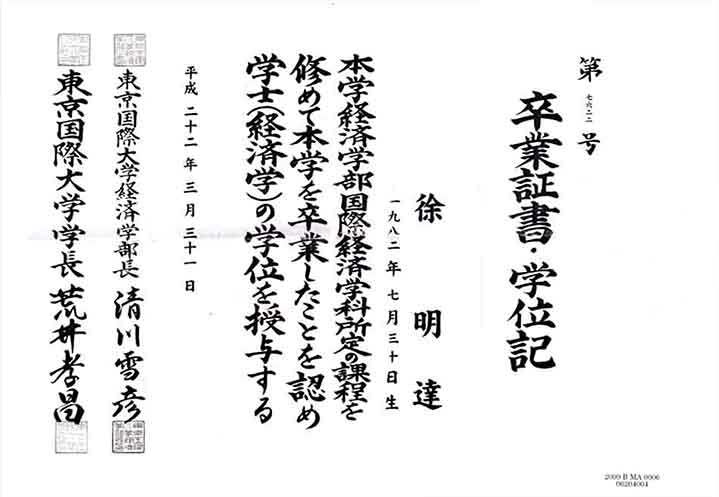 卒業証書・学位記
第七六二二号
徐 明 達
一九八二年七月三十日生
本学経済学部国際経済学科所定の課程を
修めて本学を卒業したことを認め
学士(経済学)の学位を授与する
平成二十二年三月三十一日
東京国際大学経済学部長 清川雪彦
東京国際大学学長 荒井孝昌
2009 B MA 0006
00204004